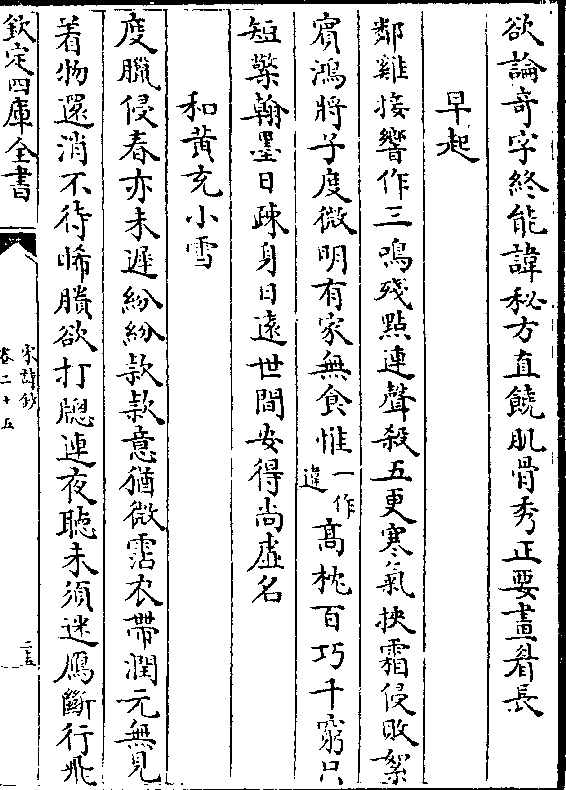 欲論奇字終能諱秘方直饒肌骨秀正要畫眉長
早起
鄰雞接響作三鳴殘點連聲殺五更寒氣挾霜侵敗絮
賓鴻將子度微明有家無食惟一作違高枕百巧千窮只
短檠翰墨日疎身日遠世間安得尚虛名
和黃充小雪
度臘侵春亦未遲紛紛款款意猶微霑衣帶潤元無見
着物還消不待晞賸欲打牕連夜聽未須迷鴈斷行飛
欽定四庫全書
宋詩鈔
卷二十五
二五